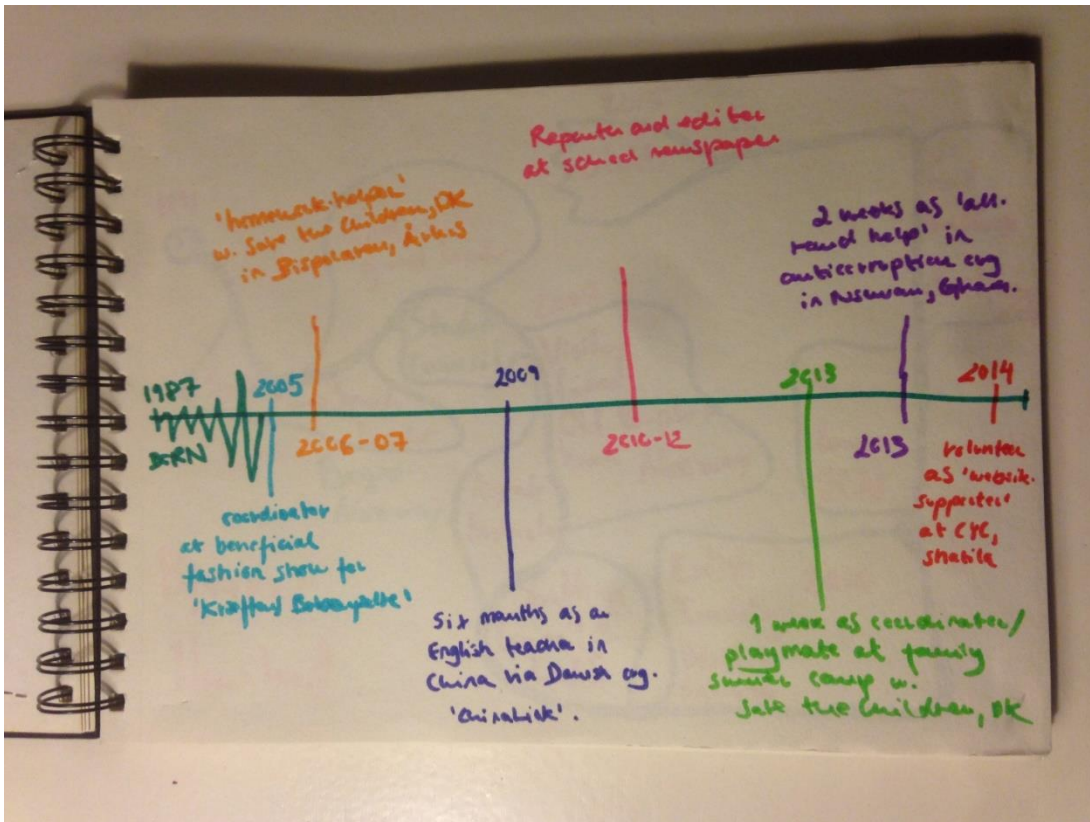 Reporter and editor
at school newspaper
'homework-helper'
w. Save the Children, DK
in Bispehaven, Århus
2 weeks as 'all-
round help' in
anticorruption org
in Nsawam, Ghana.
1987
BORN
2005
2006-07
2009
2010-12
2013
2013
2014
coordinator
at beneficial
fashion show for
'Kræftens Bekæmpelse'
Six months as an
English teacher in
China via Danish org.
'Chinalink'.
1 week as coordinator/
playmate at family
summer camp w.
Save the Children, DK
volunteer
as 'website-
supporter'
at CYC,
Shatila